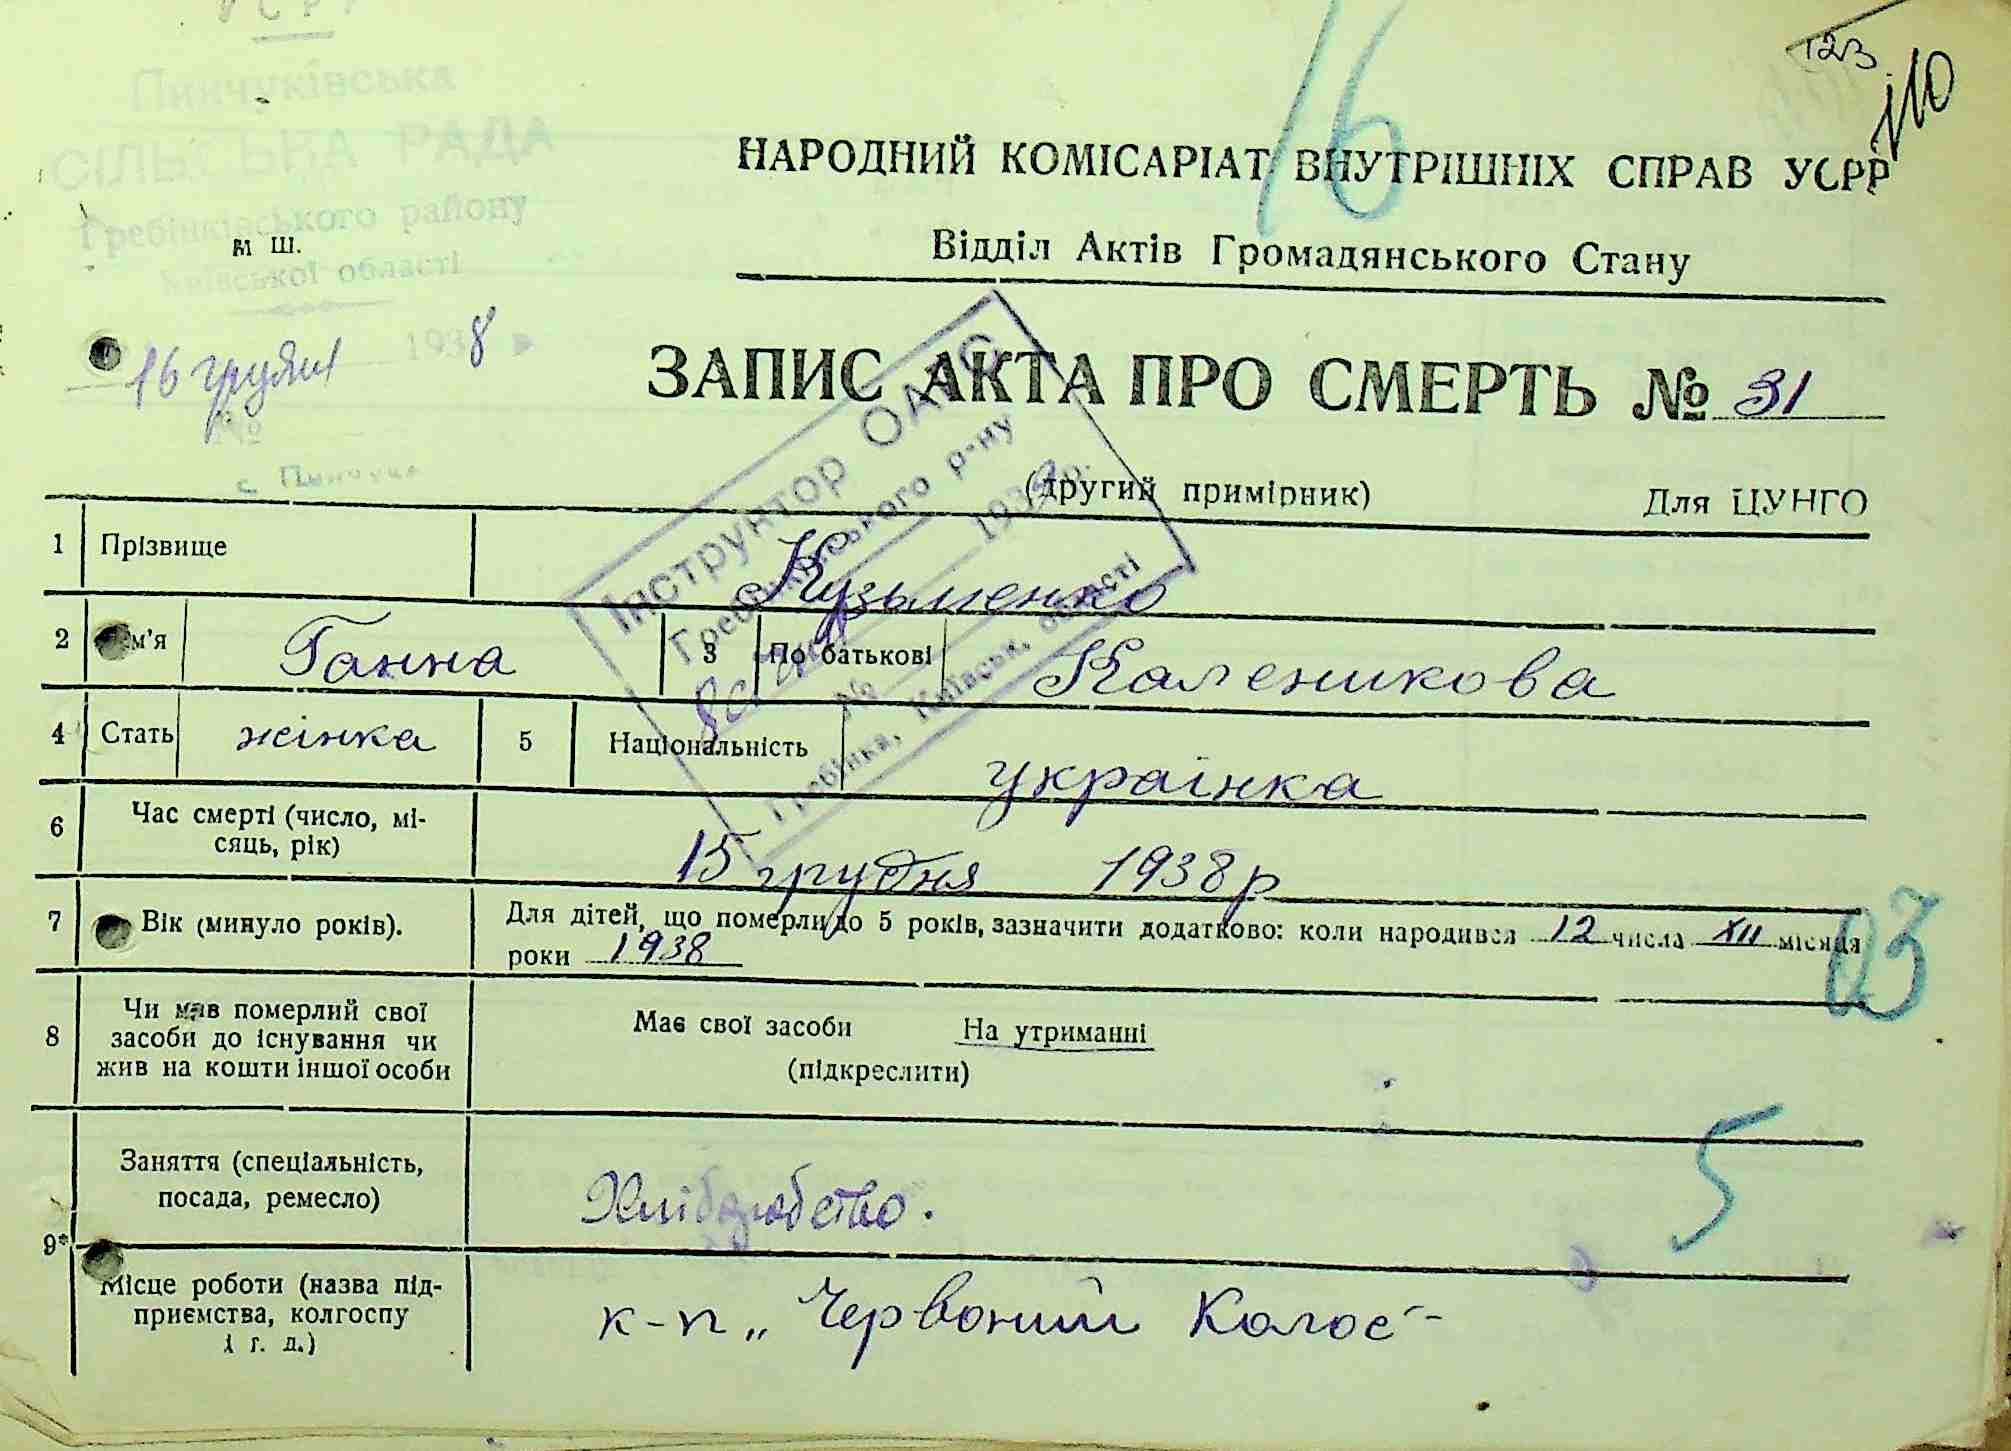 УСРР
Пинчуківська
СІЛЬСЬКА РАДА
Гребінківського району
Київської області
м ш.
16 грудня 1938
№
с. Пинчуки
16
123
110
НАРОДНИЙ КОМІСАРІАТ ВНУТРІШНІХ СПРАВ УСРР
Відділ Актів Громадянського Стану
ЗАПИС АКТА ПРО СМЕРТЬ № 31
(другий примірник) Для ЦУНГО
Інструктор ОАГС
Гребінківського р-ну
193 р.
№
Гребінка, Київськ. області
1 Прізвище Кузьменко
2 Ім'я Ганна 3 По батькові Каленикова
4 Стать жінка 5 Національність українка
6 Час смерті (число, мі-
сяць, рік) 15 грудня 1938 р
7 Вік (минуло років). Для дітей, що померли до 5 років, зазначити додатково: коли народився 12 числа XII місяця
роки 1938
8 Чи мав померлий свої
засоби до існування чи
жив на кошти іншої особи
Має свої засоби На утриманні
(підкреслити)
03
5
9* Заняття (спеціальність,
посада, ремесло) Хліборобство.
Місце роботи (назва під-
приємства, колгоспу
і т. д.)
к-п „Червоний Колос"